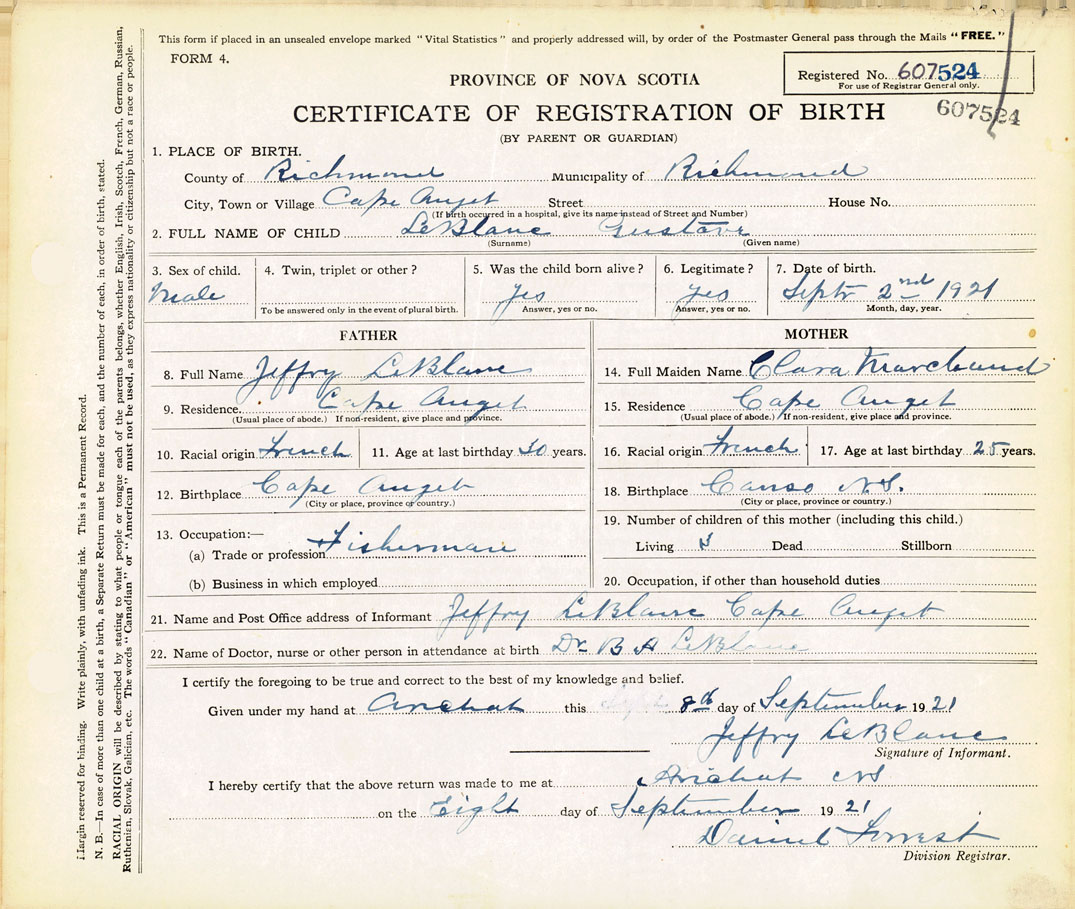 This form if placed in an unsealed envelope marked "Vital Statistics" and properly addressed will, by order of the Postmaster General pass through the Mails "FREE."
FORM 4.
Registered No. 607524
For use of Registrar General only.
607524
PROVINCE OF NOVA SCOTIA
CERTIFICATE OF REGISTRATION OF BIRTH
(BY PARENT OR GUARDIAN)
1. PLACE OF BIRTH.
County of Richmond Municipality of Richmond
City, Town or Village Cape Auget Street House No.
(If birth occurred in a hospital, give its name instead of Street and Number)
2. FULL NAME OF CHILD LeBlanc Gustave
(Surname) (Given name)
3. Sex of child. Male
4. Twin, triplet or other?
To be answered only in the event of plural birth.
5. Was the child born alive? Yes
Answer, yes or no.
6. Legitimate? Yes
Answer, yes or no.
7. Date of birth.
Septr 2nd 1921
Month, day, year.
FATHER
8. Full Name Jeffry LeBlanc
9. Residence. Cape Auget
(Usual place of abode.) If non-resident, give place and province.
10. Racial origin French 11. Age at last birthday 30 years.
12. Birthplace Cape Auget
(City or place, province or country.)
13. Occupation:—
(a) Trade or profession Fisherman
(b) Business in which employed
MOTHER
14. Full Maiden Name Clara Marchand
15. Residence Cape Auget
(Usual place of abode.) If non-resident, give place and province.
16. Racial origin French 17. Age at last birthday 25 years.
18. Birthplace Canso N.S.
(City or place, province or country.)
19. Number of children of this mother (including this child.)
Living Dead Stillborn
20. Occupation, if other than household duties
21. Name and Post Office address of Informant Jeffry LeBlanc Cape Auget
22. Name of Doctor, nurse or other person in attendance at birth Dr B A LeBlanc
I certify the foregoing to be true and correct to the best of my knowledge and belief.
Given under my hand at Arichat this 8th day of September 1921
Jeffry LeBlanc
Signature of Informant.
I hereby certify that the above return was made to me at Arichat NS
on the Eight day of September 1921
Daniel Forrest
Division Registrar.
Margin reserved for binding. Write plainly, with unfading ink. This is a Permanent Record.
N. B.—In case of more than one child at a birth, a Separate Return must be made for each, and the number of each, in order of birth, stated.
RACIAL ORIGIN will be described by stating to what people or tongue each of the parents belongs, whether English, Irish, Scotch, French, German, Russian,
Ruthenian, Slovak, Galician, etc. The words "Canadian" or "American" must not be used, as they express nationality or citizenship but not a race or people.